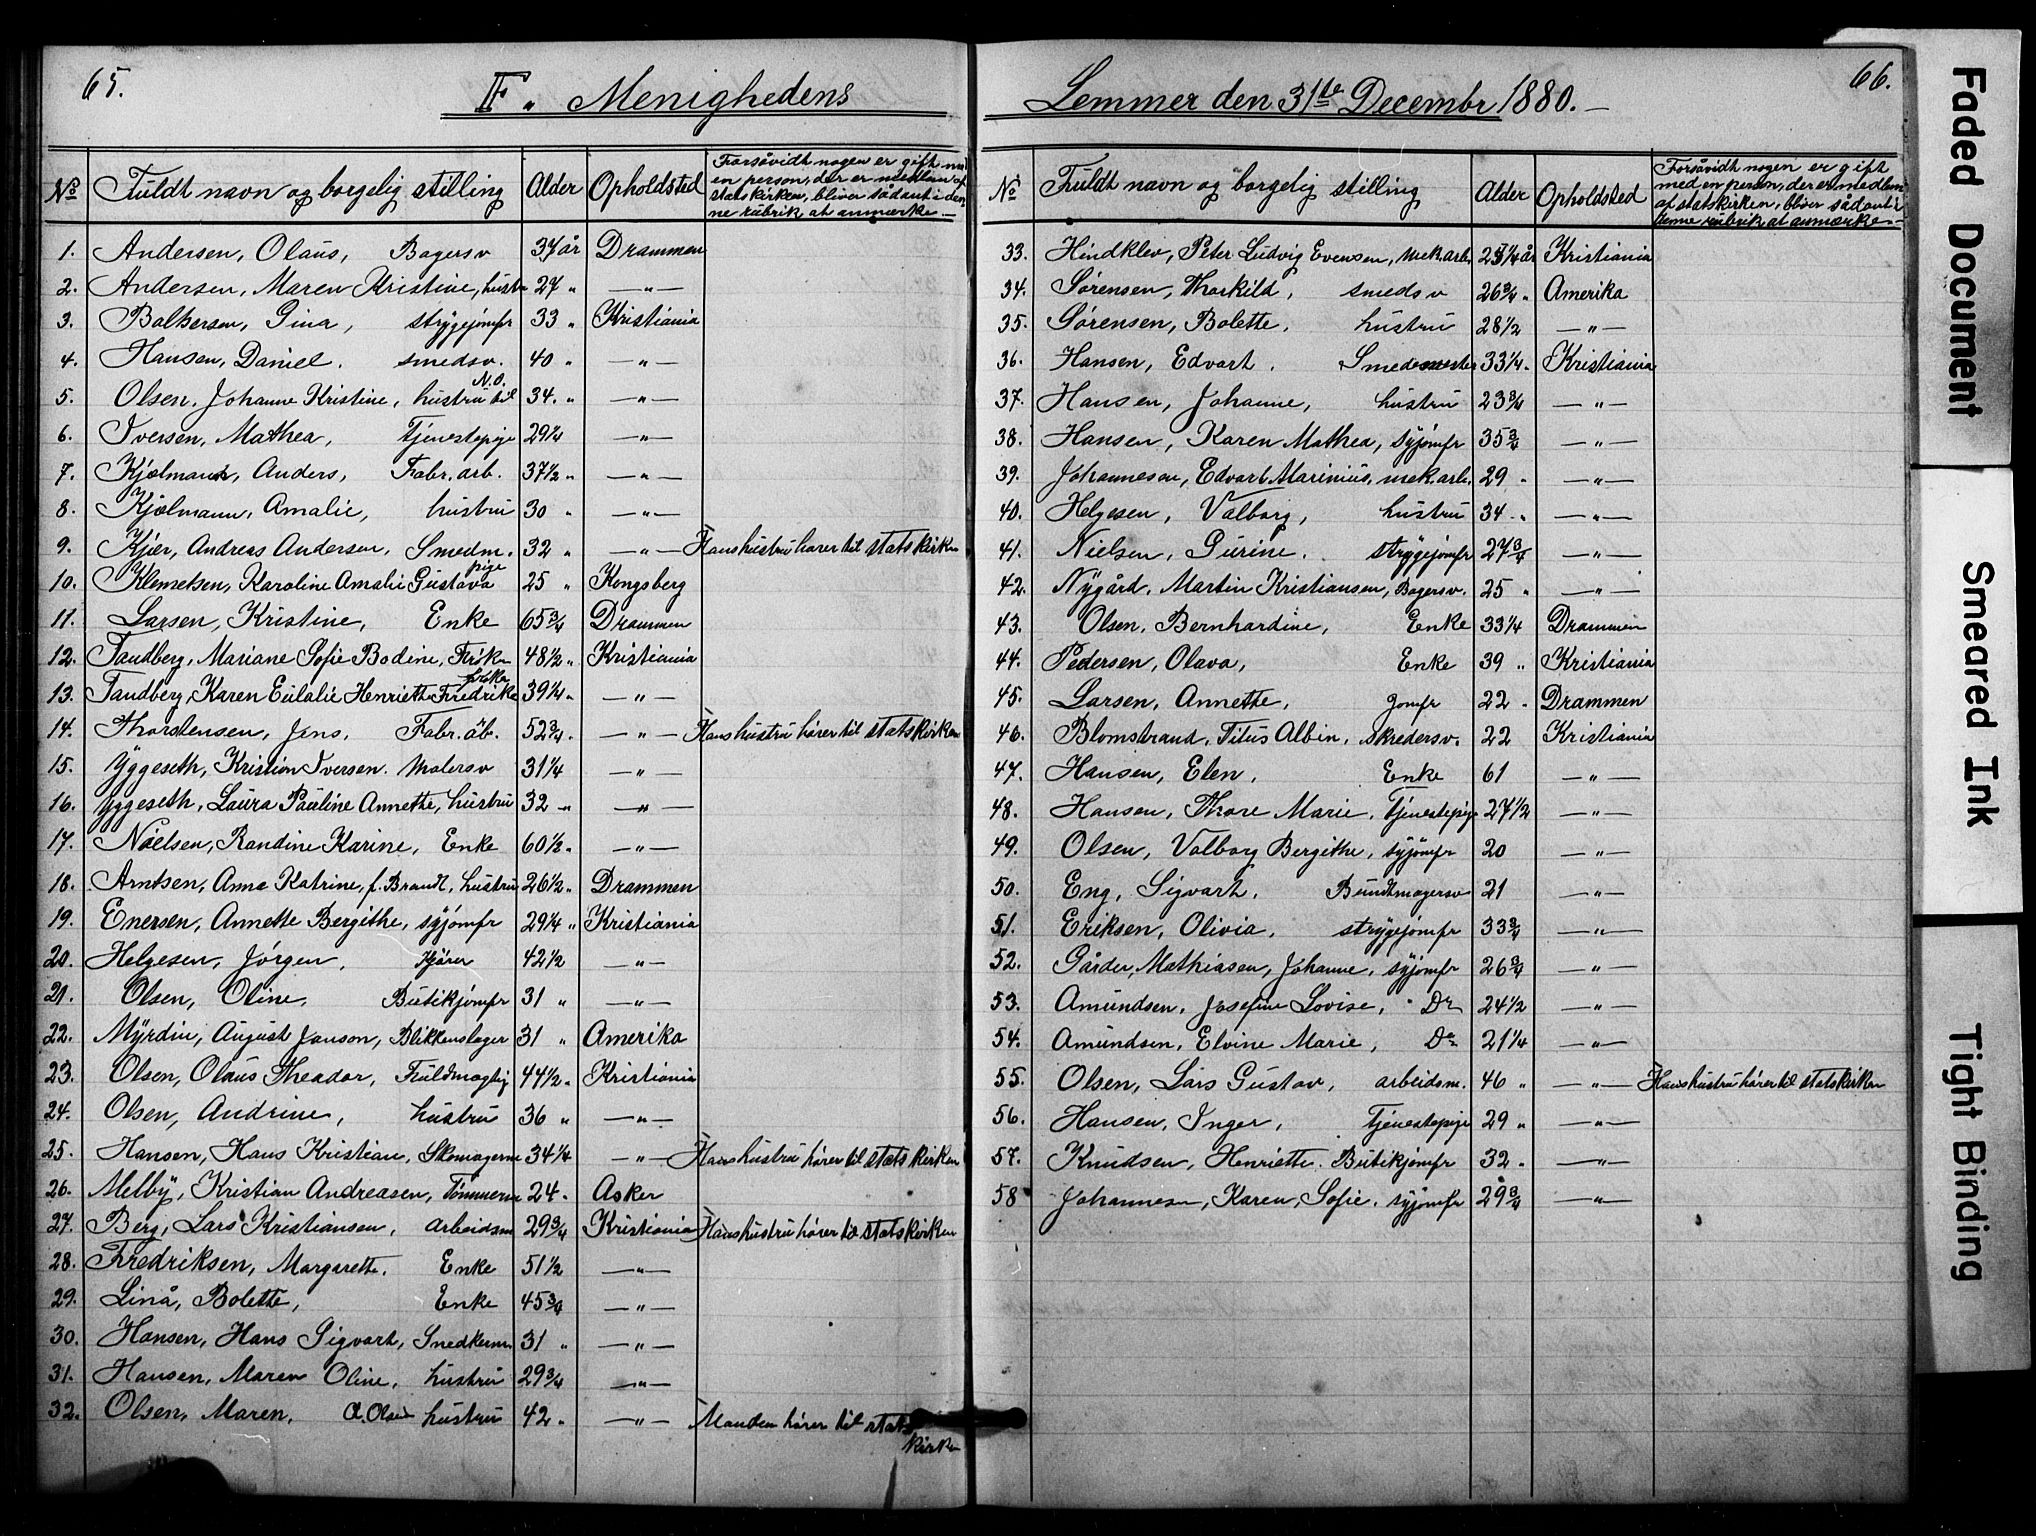 65.
F. Menighedens
No Fuldt navn og borgelig stilling Alder Opholdsted Forsåvidt nogen er gift med
en person, der er medlem af
statskirken, bliver sådant i den-
ne rubrik at anmærke.—
1. Andersen, Olaus, Bagersv 37 år Drammen
2. Andersen, Maren Kristine, hustr 27 " —"—
3. Balkersen, Gina, strygejómfr 33 " Kristiania
4. Hansen, Daniel. smedsv. 40 " —"—
5. Olsen, Johanne Kristine, hustru til N.O. 34. " —"—
6. Iversen, Mathea, Tjenestepige 29 1/4 —"—
7. Kjølmann, Anders, Fabr. arb. 37 1/2 " —"—
8. Kjølmann, Amalie, hustru 30 " —"—
9. Kjær, Andreas Andersen, Smedm. 32 " —"— Hans hustru hører til statskirken
10. Klemetsen, Karoline Amalie Gustava pige 25 " Kongsberg
11. Larsen, Kristine, Enke 65 3/4 Drammen
12. Tandberg, Mariane Sofie Bodine, Frøken 48 1/2 " Kristiania
13. Tandberg, Karen Eulalie Henriette Fredrike frøken 39 1/4 " —"—
14. Thorstensen, Jens, Fabr. åb. 52 3/4 " —"— Hans hustru hører til statskirken
15. Yggeseth, Kristian Iversen. Malersv 31 1/4 —"—
16. Yggeseth, Laura Pauline Annette, hustru 32 " —"—
17. Nielsen, Randine Karine, Enke 60 1/2 " —"—
18. Arntsen, Anna Katrine, f. Brandt, hustru 26 1/2 " Drammen
19. Enersen, Annette Bergithe, syjómfr 29 1/4 " Kristiania
20. Helgesen, Jórgen, Kjører 42 1/2 —"—
21. Olsen, Oline, Butikjómfr 31 " —"—
22. Myrdin, August Janson, Blikkenslager 31 " Amerika
23. Olsen, Olaus Theador, Fuldmægtig 44 1/2 " Kristiania
24. Olsen, Andrine, hustru 36 " —"—
25. Hansen, Hans Kristian, Skomagerm 34 1/4 —"— Hans hustru hører til statskirken
26. Melby, Kristian Andreasen, Tømmerm 24 " Asker
27. Berg, Lars Kristiansen, arbeidsm 29 3/4 Kristiania Hans hustru hører til statskirken
28. Fredriksen, Margarette. Enke 51 1/2 —"—
29. Linå, Bolette, Enke 45 3/4 —"—
30. Hansen, Hans Sigvart, Snedkerm. 31 " —"—
31. Hansen, Maren Oline, hustru 29 3/4 —"—
32. Olsen, Maren, O. Olsen hustru 42 " —"— Manden hører til stats
kirken
66.
Lemmer den 31te Decembr 1880.—
No Fuldt navn og borgelig stilling Alder Opholdsted Forsåvidt nogen er gift
med en person, der er medlem
af statskirken, bliver sådant i
denne rubrik at anmærke.—
33. Hindklev, Peter Ludvig Evensen, mek. arb. 25 1/4 år Kristiania
34. Sørensen, Thorkild, smedsv 26 3/4 " Amerika
35. Sørensen, Bolette, hustru 28 1/2 —"—
36. Hansen, Edvart. Smedemester 33 1/4 " Kristiania
37. Hansen, Johanne, hustru 23 3/4 —"—
38. Hansen, Karen Mathea, syjómfr 35 3/4 —"—
39. Johannesen, Edvart Marinius, mek. arb. 29 " —"—
40. Helgesen, Valborg, hustru 34 " —"—
41. Nielsen, Gurine. strygejómfr 27 3/4 —"—
42. Nygård, Martin Kristiansen, Bagersv. 25 " —"—
43. Olsen, Bernhardine, Enke 33 1/4 Drammen
44. Pedersen, Olava, Enke 39 " Kristiania
45. Larsen, Annette, Jomfr 22 " Drammen
46. Blomstrand, Titus Albin, skredersv. 22 Kristiania
47. Hansen, Elen, Enke 61 —"—
48. Hansen, Thore Marie, Tjenestepige 27 1/2 —"—
49. Olsen, Valborg Bergithe, syjómfr 20 —"—
50. Eng, Sigvart, Bundtmagersv 21 —"—
51. Eriksen, Olivia, strygejómfr 33 3/4 —"—
52. Gårder, Mathiasen, Johanne, syjómfr 26 3/4 —"—
53. Amundsen, Josefine Lovise, Do 24 1/2 —"—
54. Amundsen, Elvine Marie, Do 21 1/4 —"—
55. Olsen, Lars Gustav, arbeidsm. 46 " —"— Hans hustru hører til statskirken
56. Hansen, Inger, Tjenestepige 29 " —"—
57. Knudsen, Henriette. Butikjómfr 32 " —"—
58 Johannesen, Karen, Sofie. syjómfr 29 3/4 —"—
Faded Document
Smeared Ink
Tight Binding